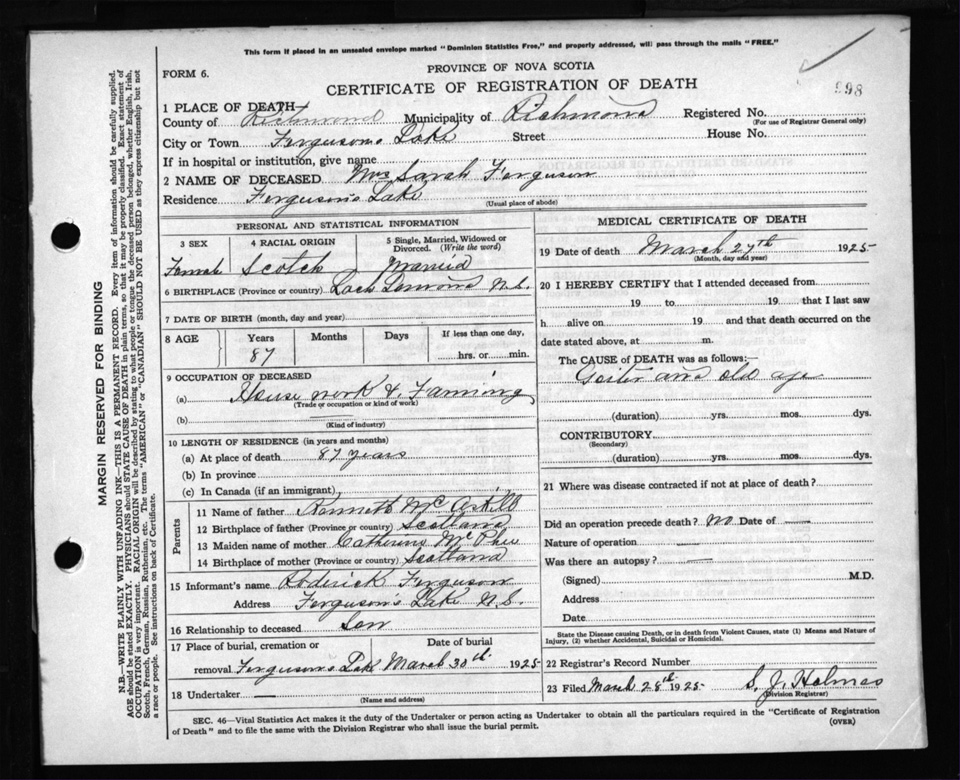 This form if placed in an unsealed envelope marked "Dominion Statistics Free," and properly addressed, will pass through the mails "FREE."
PROVINCE OF NOVA SCOTIA
FORM 6.
CERTIFICATE OF REGISTRATION OF DEATH
998
1 PLACE OF DEATH
County of Richmond Municipality of Richmond Registered No.
(For use of Registrar General only)
City or Town Fergusons Lake Street House No.
If in hospital or institution, give name
2 NAME OF DECEASED Mrs Sarah Ferguson
Residence Ferguson's Lake
(Usual place of abode)
PERSONAL AND STATISTICAL INFORMATION
3 SEX 4 RACIAL ORIGIN 5 Single, Married, Widowed or Divorced. (Write the word)
Female Scotch Married
6 BIRTHPLACE (Province or country) Loch Lomond N.S.
7 DATE OF BIRTH (month, day and year)
8 AGE Years Months Days If less than one day,
87 hrs. or min.
9 OCCUPATION OF DECEASED
(a) House work & Farming
(Trade or occupation or kind of work)
(b)
(Kind of industry)
10 LENGTH OF RESIDENCE (in years and months)
(a) At place of death 87 years
(b) In province
(c) In Canada (if an immigrant)
Parents
11 Name of father Kenneth McAskill
12 Birthplace of father (Province or country) Scotland
13 Maiden name of mother Catherine McPhee
14 Birthplace of mother (Province or country) Scotland
15 Informant's name Roderick Ferguson
Address Ferguson's Lake N.S.
16 Relationship to deceased Son
17 Place of burial, cremation or removal Date of burial
Fergusons Lake March 30th 1925
18 Undertaker —
(Name and address)
MEDICAL CERTIFICATE OF DEATH
19 Date of death March 27th 1925
(Month, day and year)
20 I HEREBY CERTIFY that I attended deceased from
19 to 19 that I last saw
h alive on 19 and that death occurred on the
date stated above, at m.
The CAUSE of DEATH was as follows:—
Goiter and old age
(duration) yrs. mos. dys.
CONTRIBUTORY
(Secondary)
(duration) yrs. mos. dys.
21 Where was disease contracted if not at place of death?
Did an operation precede death? no Date of —
Nature of operation —
Was there an autopsy? —
(Signed) M.D.
Address
Date
State the Disease causing Death, or in death from Violent Causes, state (1) Means and Nature of
Injury, (2) whether Accidental, Suicidal or Homicidal.
22 Registrar's Record Number
23 Filed March 28th 1925 S. J. Holmes
(Division Registrar)
SEC. 46—Vital Statistics Act makes it the duty of the Undertaker or person acting as Undertaker to obtain all the particulars required in the "Certificate of Registration
of Death" and to file the same with the Division Registrar who shall issue the burial permit.
(OVER)
MARGIN RESERVED FOR BINDING
N.B.—WRITE PLAINLY WITH UNFADING INK—THIS IS A PERMANENT RECORD. Every item of information should be carefully supplied.
AGE should be stated EXACTLY. PHYSICIANS should STATE CAUSE OF DEATH in plain terms, so that it may be properly classified. Exact statement of
OCCUPATION is very important. RACIAL ORIGIN will be described by stating to what people or tongue the deceased person belonged, whether English, Irish,
Scotch, French, German, Russian, Ruthenian, etc. The terms "AMERICAN" or "CANADIAN" SHOULD NOT BE USED as they express citizenship but not
a race or people. See instructions on back of Certificate.